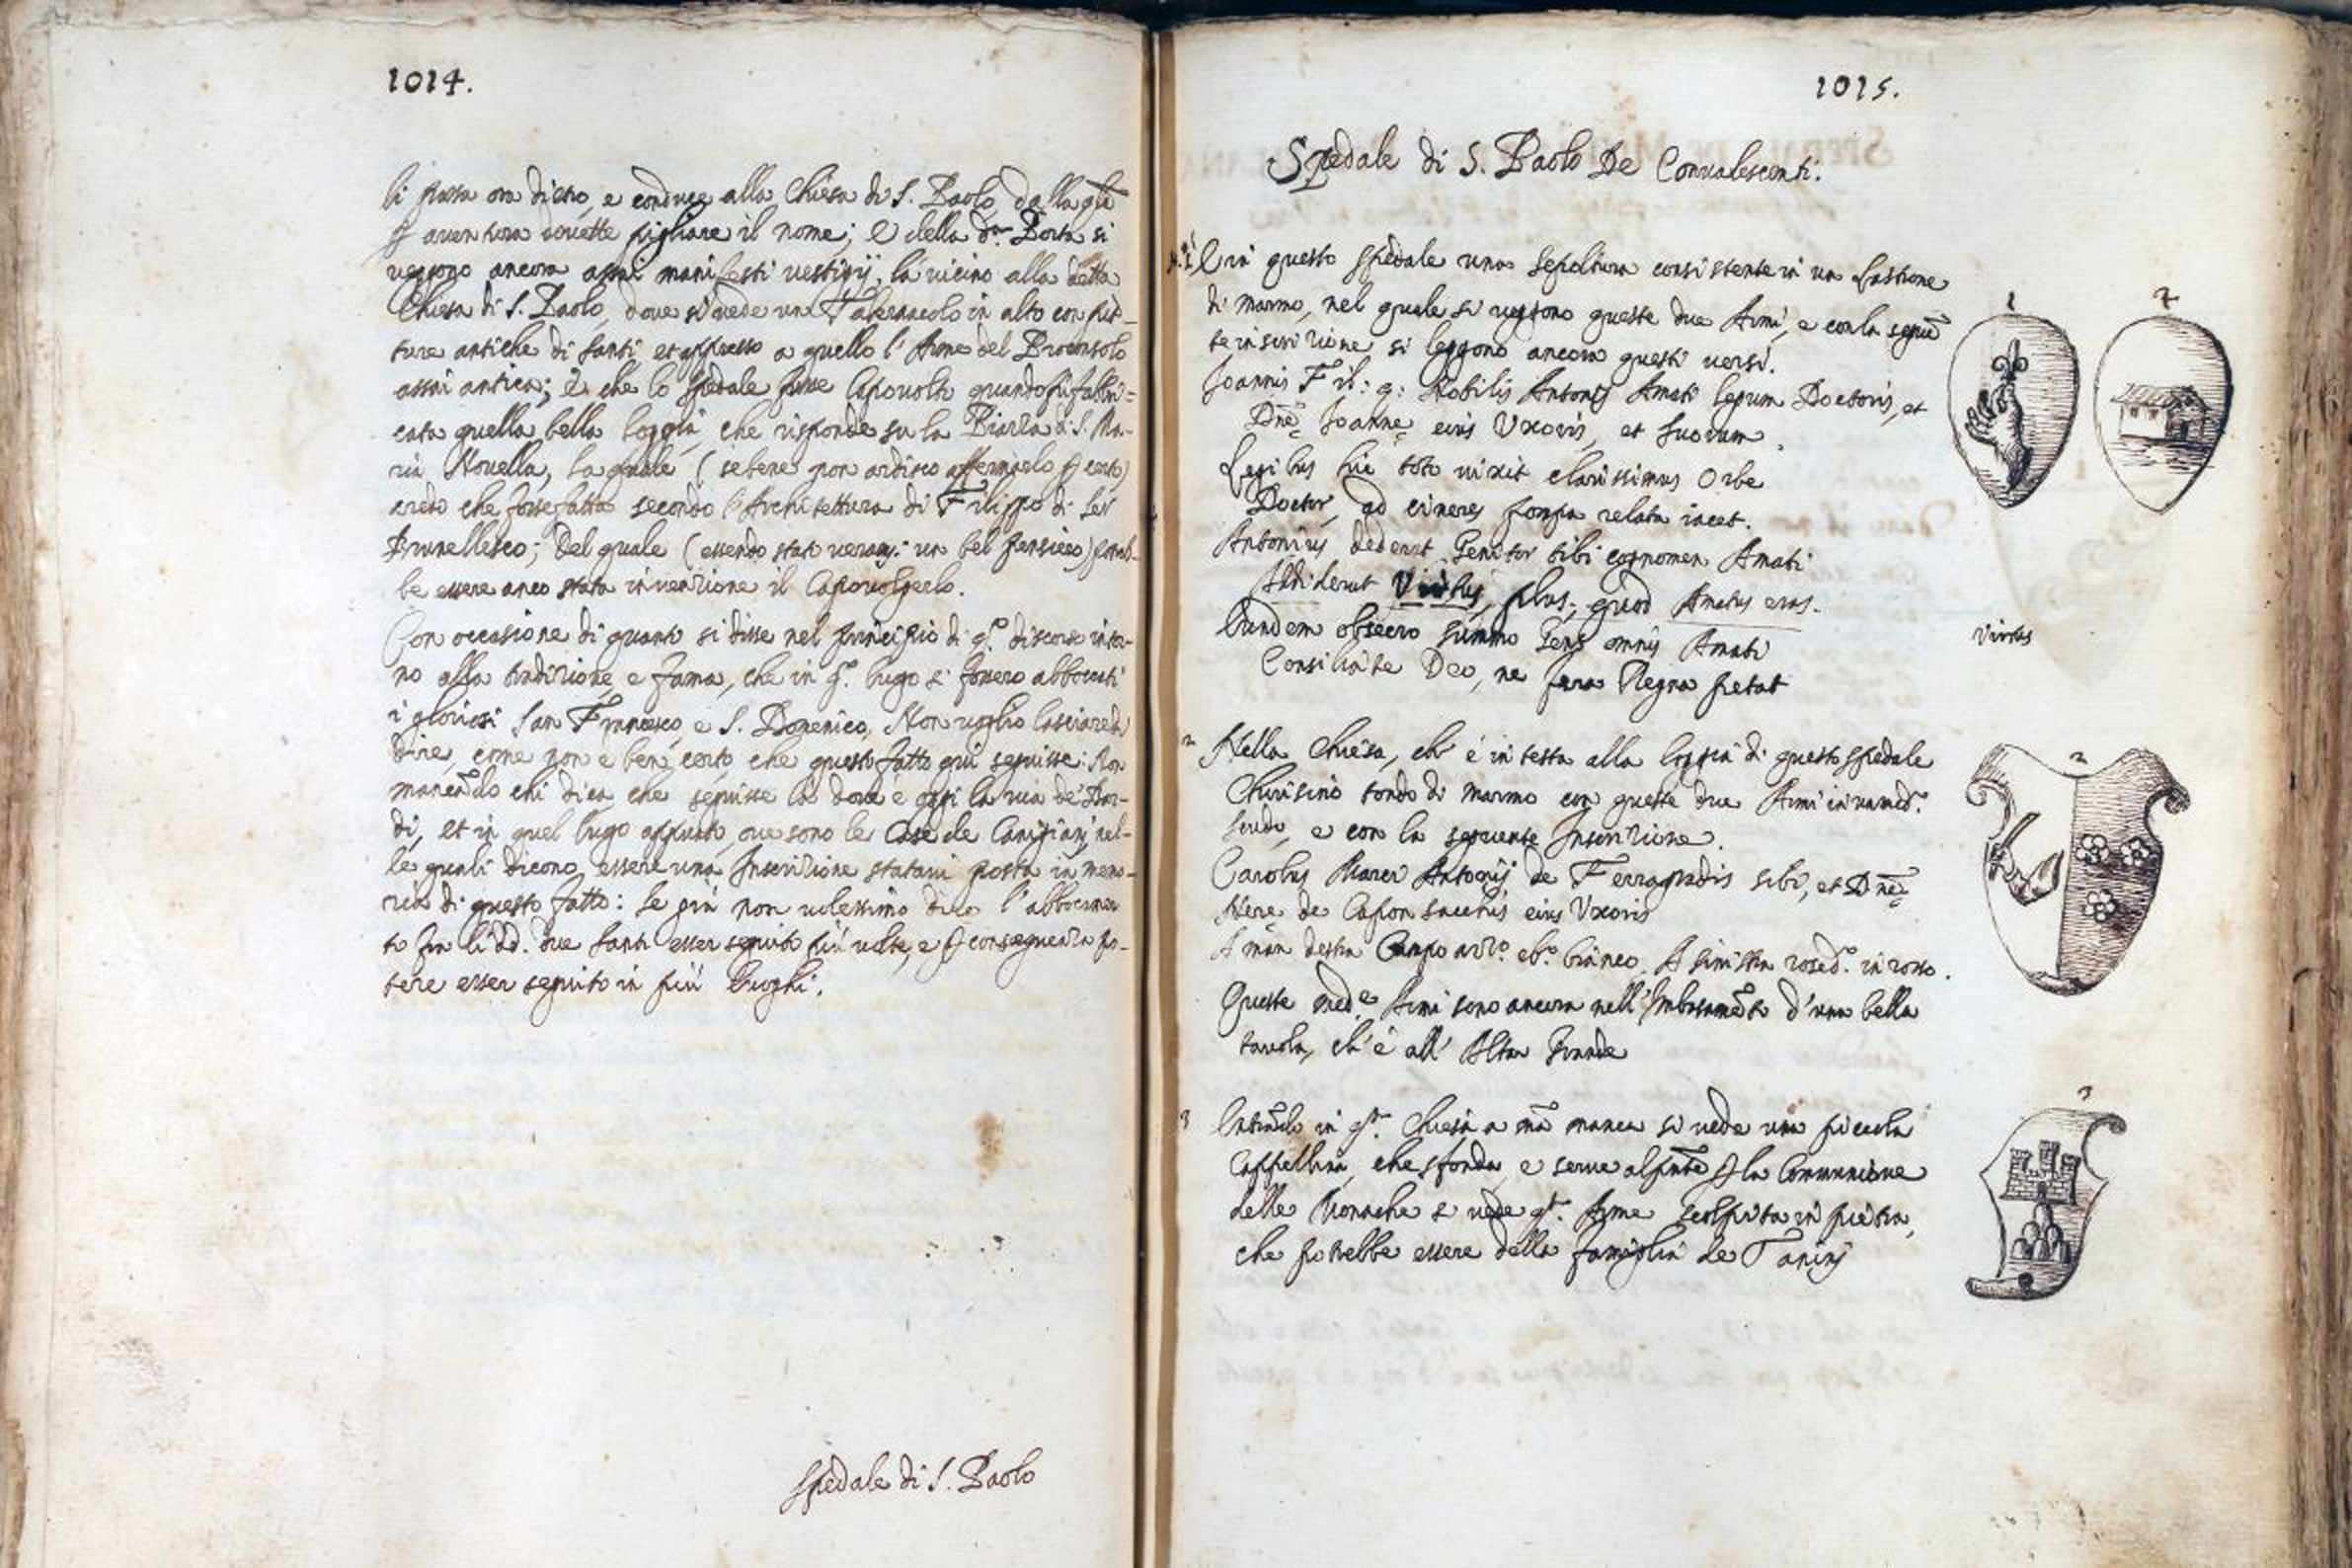 1014.
li passa ora dietro, e conduce alla Chiesa di S. Paolo, dalla qle
aventura dovette pigliare il nome; e della da. Porta si
veggono ancora assai manifesti vestigij, là vicino alla detta
Chiesa di S. Paolo, dove si vede un Tabernacolo in alto con pit-
ture antiche di Santi et appresso a quello l'Arme del Proconsolo
assai antica; e che lo Spedale fusse Capovolto quando fu fabbri=
cata quella bella loggia, che risponde su la Piazza di S. Ma-
ria Novella, la quale (sebene non ardisco affermarlo certo)
credo che fosse fatta secondo l'Architettura di Filippo di Ser
Brunellesco; Del quale (essendo stato un bel pensiero) potreb-
be essere anco stata invenzione il Capovolgerlo.
Con occasione di quanto si disse nel principio di qo. discorso intor-
no alla tradizione, e fama, che in qo. luogo si fossero abboccati
i gloriosi San Francesco, e S. Domenico, Non voglio lasciare di
dire, come non è ben certo, che questo fatto qui seguisse: Non
mancãdo chi dica che seguisse là dove è oggi la via de' Bar-
di, et in quel luogo appunto, ove sono le Case de Canigianj nel-
le quali dicono essere una Inscrizione statavi posta in memo-
ria di questo fatto: Se già non volessimo dire l'abboccamen
to fra li dd. due Santi esser seguito più volte, e conseguenza po-
tere esser seguito in più luoghi.
Spedale di S. Paolo
1015.
Spedale di S. Paolo De Convalescenti.
È in questo Spedale una Sepoltura consistente in un lastrone
di marmo, nel quale si veggono queste due Armi, e con la seguẽ
te inscrizione si leggono ancora questi versi.
1 2
Joannis Fil: q: Nobilis Antonij Amati legum Doctoris, et
Dnẽ Joanne eius Uxoris, et Suorum
Legibus hic toto vixit clarissimus Orbe
Doctor, ad cineres pompa relata iacet.
Antonius dederat Genitor tibi cognomen Amati
Addiderat Virtus, plus, quod Amatus eras.
virtus
Eundem obsecro summo Gens omnis Amati
Consiliate Deo, ne fera Regna petat
2 Nella Chiesa, ch' è in testa alla loggia di questo Spedale
Chiusino tondo di marmo con queste due Armi in un medo.
scudo, e con la seguente Inscrizione.
2
Carolus Marci Antonij de Ferragradis sibi, et Dnẽ
Nere de Caponsacchis eius Uxoris
A man destra Campo azzo. cbo. bianco. A sinistra rose do. in rosso.
Queste mede. Armi sono ancora nell'Imbasamẽto d'una bella
tavola, ch' è all' Altar Grande
3 Intrãdo in qta. Chiesa a mã manca si vede una piccola
3
Cappellina, che sfonda, e serve al pñte la Comunione
delle Monache si vede qta. Arme scolpita in pietra,
che potrebbe essere della famiglia de Taninj